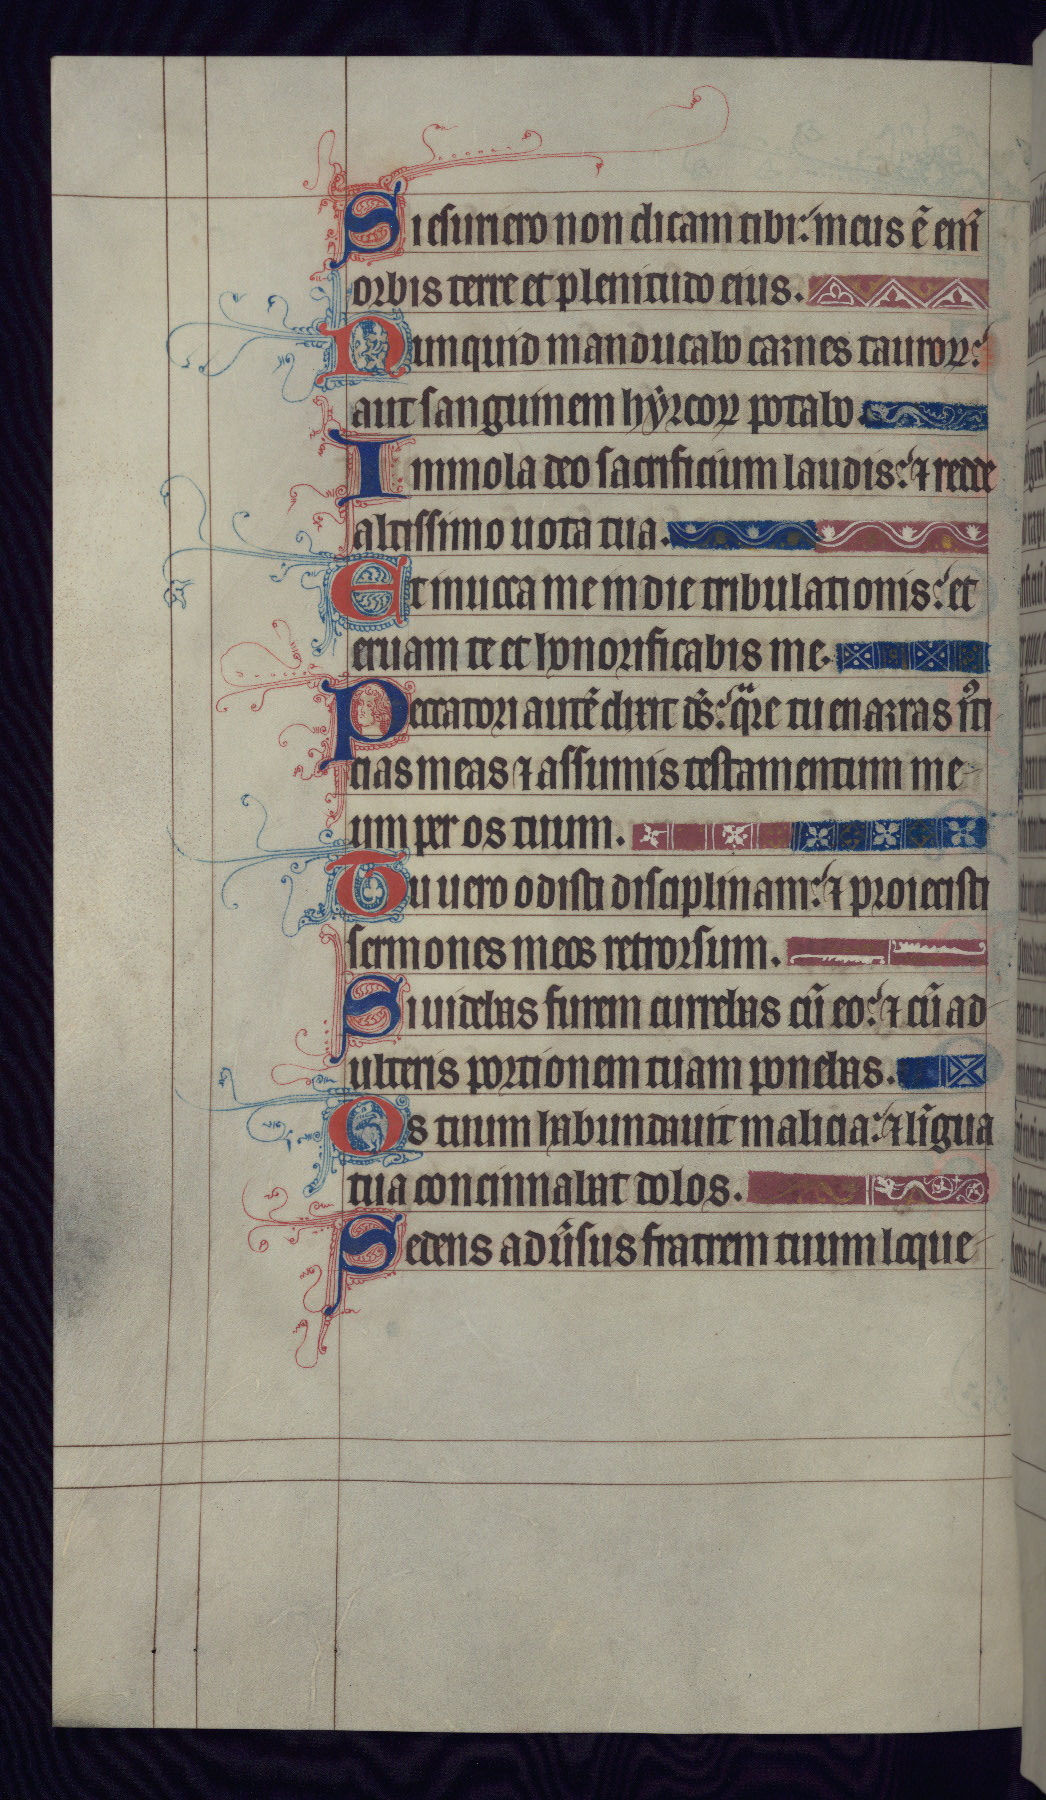 Si esuriero non dicam tibi: meus ē enī
orbis terre et plenitudo eius.
Nunquid manducabo carnes tauroꝝ:
aut sanguinem hyrcoꝝ potabo.
Immola deo sacrificium laudis: ⁊ redde
altissimo uota tua.
Et inuoca me in die tribulationis: et
eruam te et honorificabis me.
Peccatori autē dixit ds̄: qͣre tu enarras iͦti
cias meas ⁊ assumis testamentum me
um per os tuum.
Tu uero odisti disciplinam: ⁊ proiecisti
sermones meos retrorsum.
Si uidebas furem currebas cū eo: ⁊ cū ad
ulteris portionem tuam ponebas.
Os tuum habundauit malicia: ⁊ līgua
tua concinnabat dolos.
Sedens adūsus fratrem tuum loque